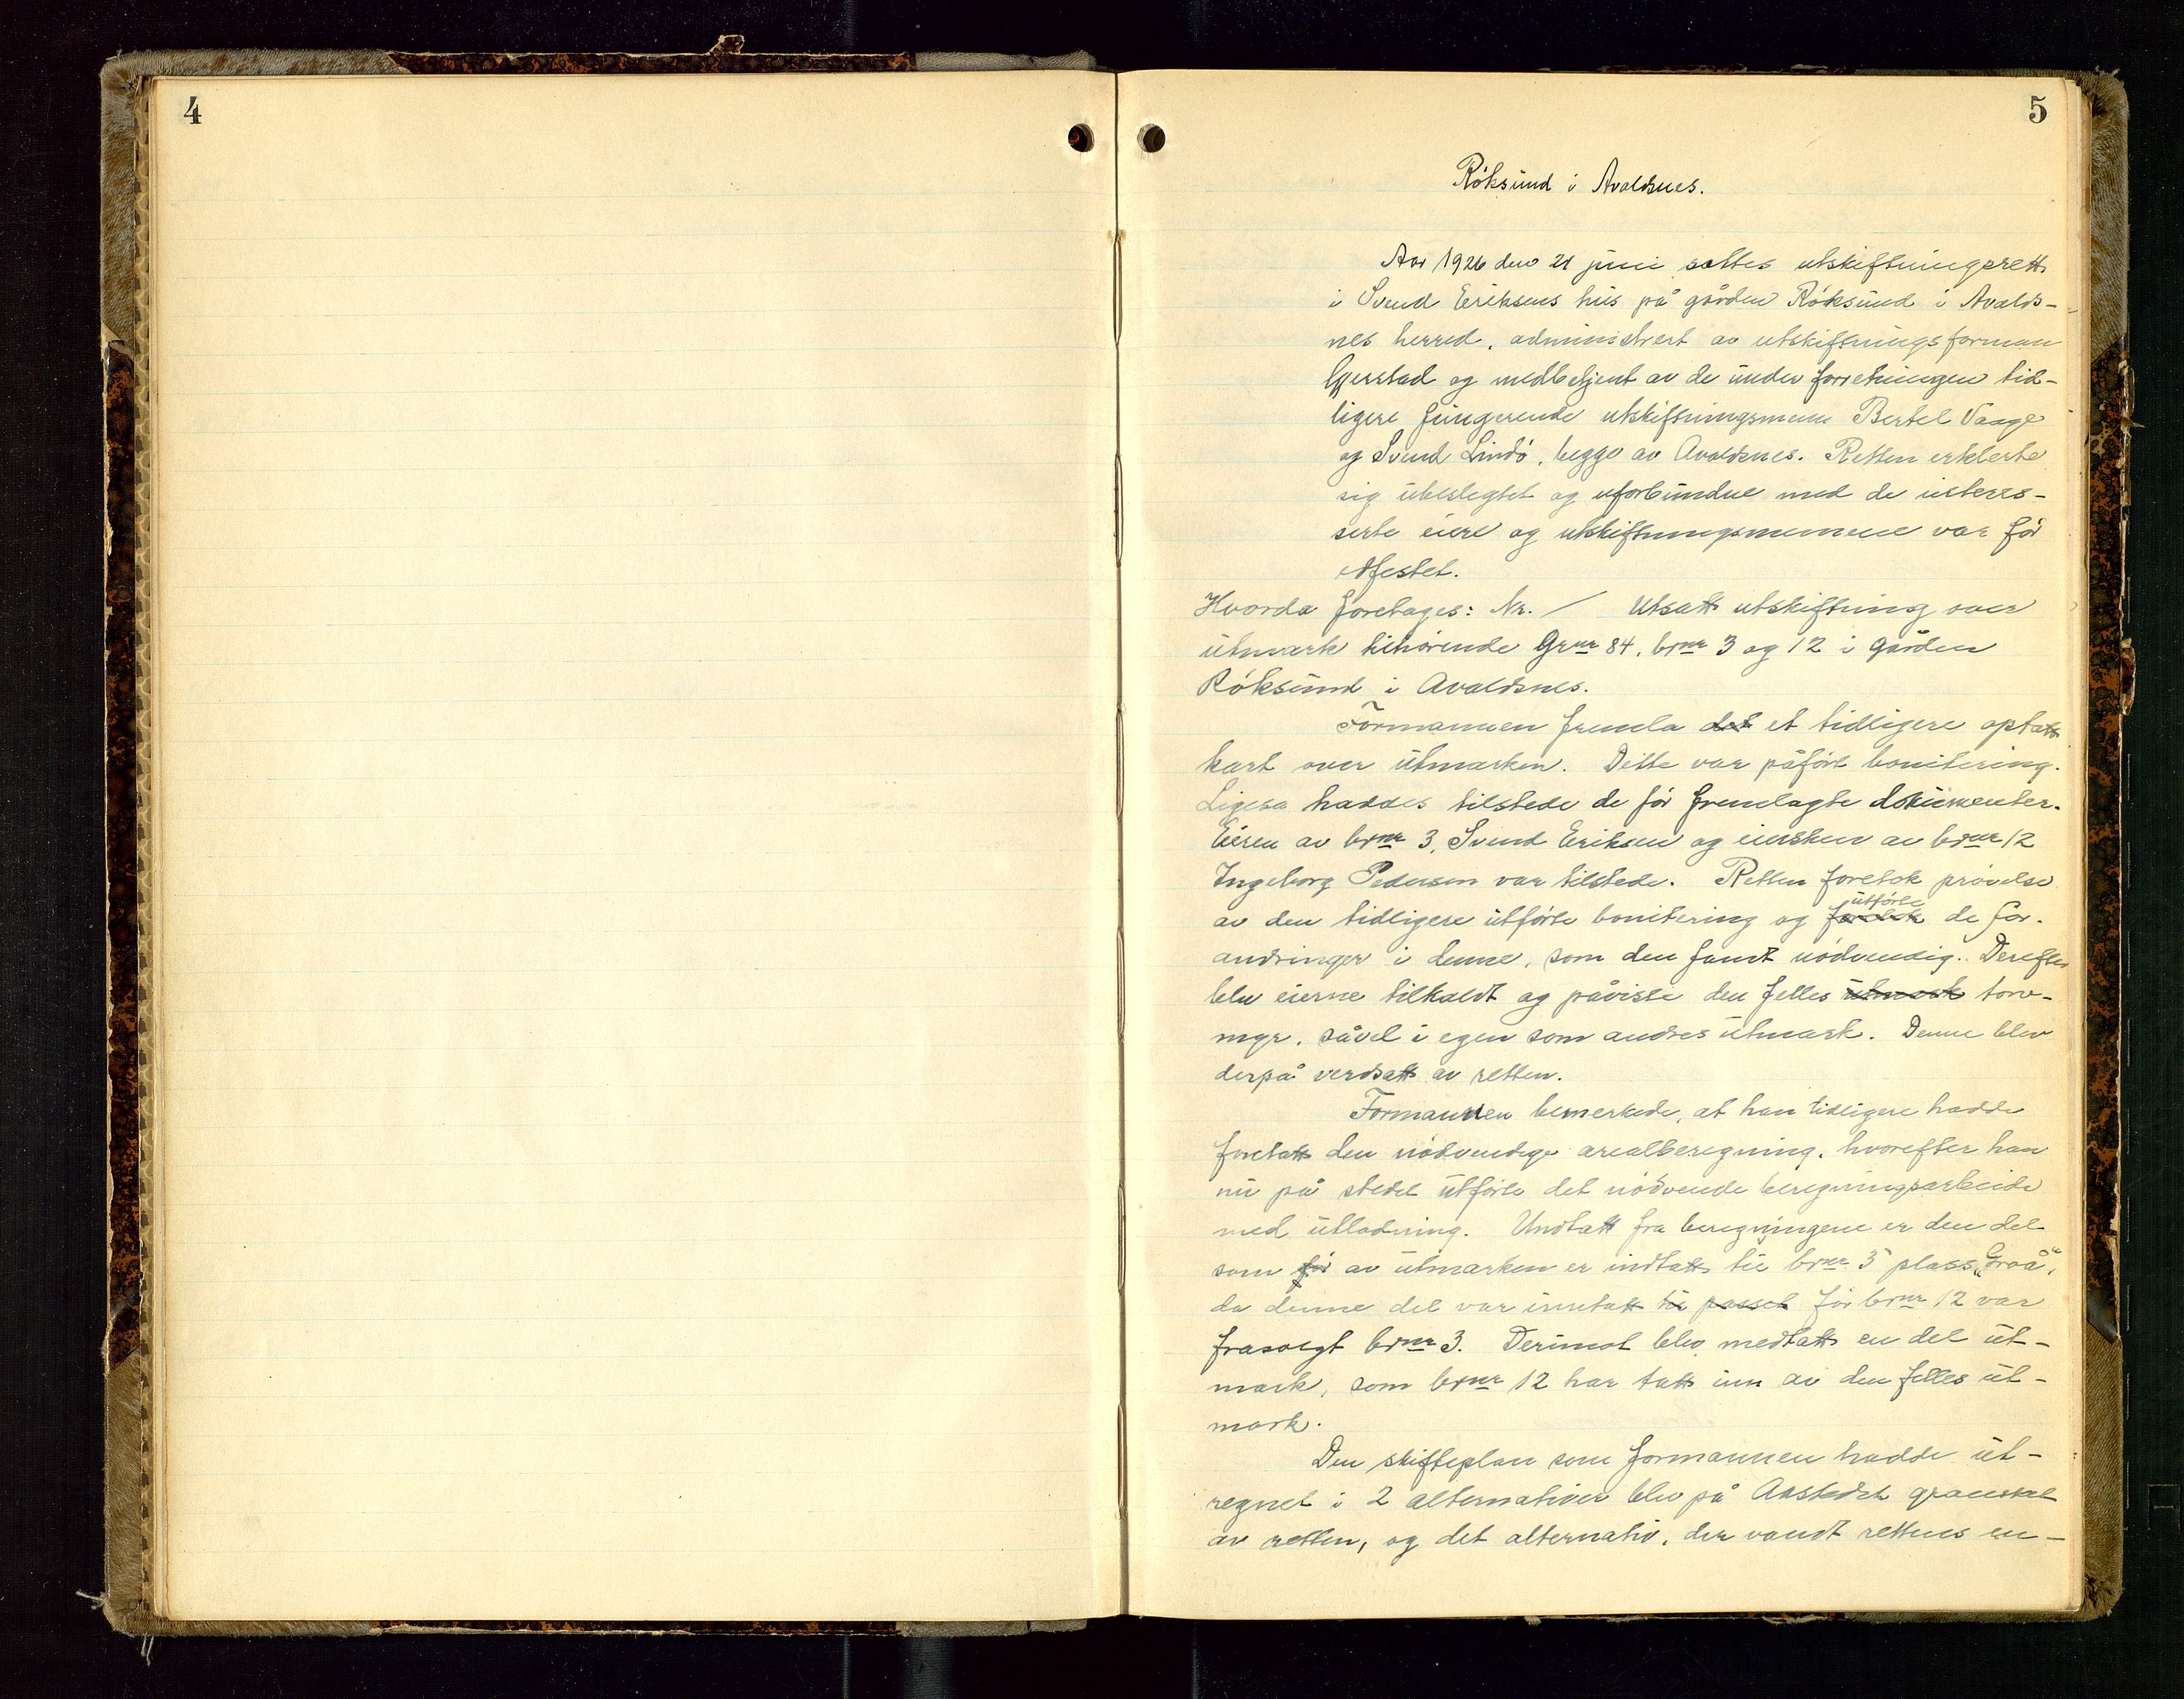 4
5
Røksund i Avaldsnes.
Aar 1926 den 21 juni sattes utskiftningsrett
i Svend Eriksens hus på gården Røksund i Avalds-
nes herred, administrert av utskiftningsforman
Gjerstad og medbetjent av de under forretningen tid-
ligere fungerende utskiftningsmenn Bertel Vaage
og Svend Lindø, begge av Avaldsnes. Retten erklerte
sig ubeslegtet og uforbundne med de interes-
serte eiere og utskiftningsmennene var før
edfestet.
Hvorda foretages: Nr. / Utsatt utskiftning over
utmark tilhørende Grnr 84, brnr 3 og 12 i gården
Røksund i Avaldsnes.
Formannen fremla det et tidligere optatt
kart over utmarken. Dette var påført bonitering.
Ligesa haddes tilstede de før fremlagte dokumenter.
Eieren av brnr 3, Svend Eriksen og eiersken av brnr 12
Ingeborg Pedersen var tilstede. Retten foretok prøvelse
av den tidligere utførte bonitering og foretok utførte de for-
andringer i denne, som den fandt nødvendig. Derefter
blev eierne tilkaldt og påviste den felles utmark torv-
myr, såvel i egen som andres utmark. Denne blev
derpå verdsatt av retten.
Formannen bemerkede, at han tidligere hadde
foretatt den nødvendige arealberegning, hvorefter han
nu på stedet utførte det nødvende beregningsarbeide
med utlodning. Undtatt fra beregningene er den del
som før av utmarken er indtatt til brnr 3 plass „Braa",
da denne del var inntatt til passet før brnr 12 var
frasolgt brnr 3. Derimot blev medtatt en del ut-
mark, som brnr 12 har tatt inn av den felles ut-
mark.
Den skifteplan som formannen hadde ut-
regnet i 2 alternativer blev på Aastedet gransket
av retten, og det alternativ, der vandt rettens en-